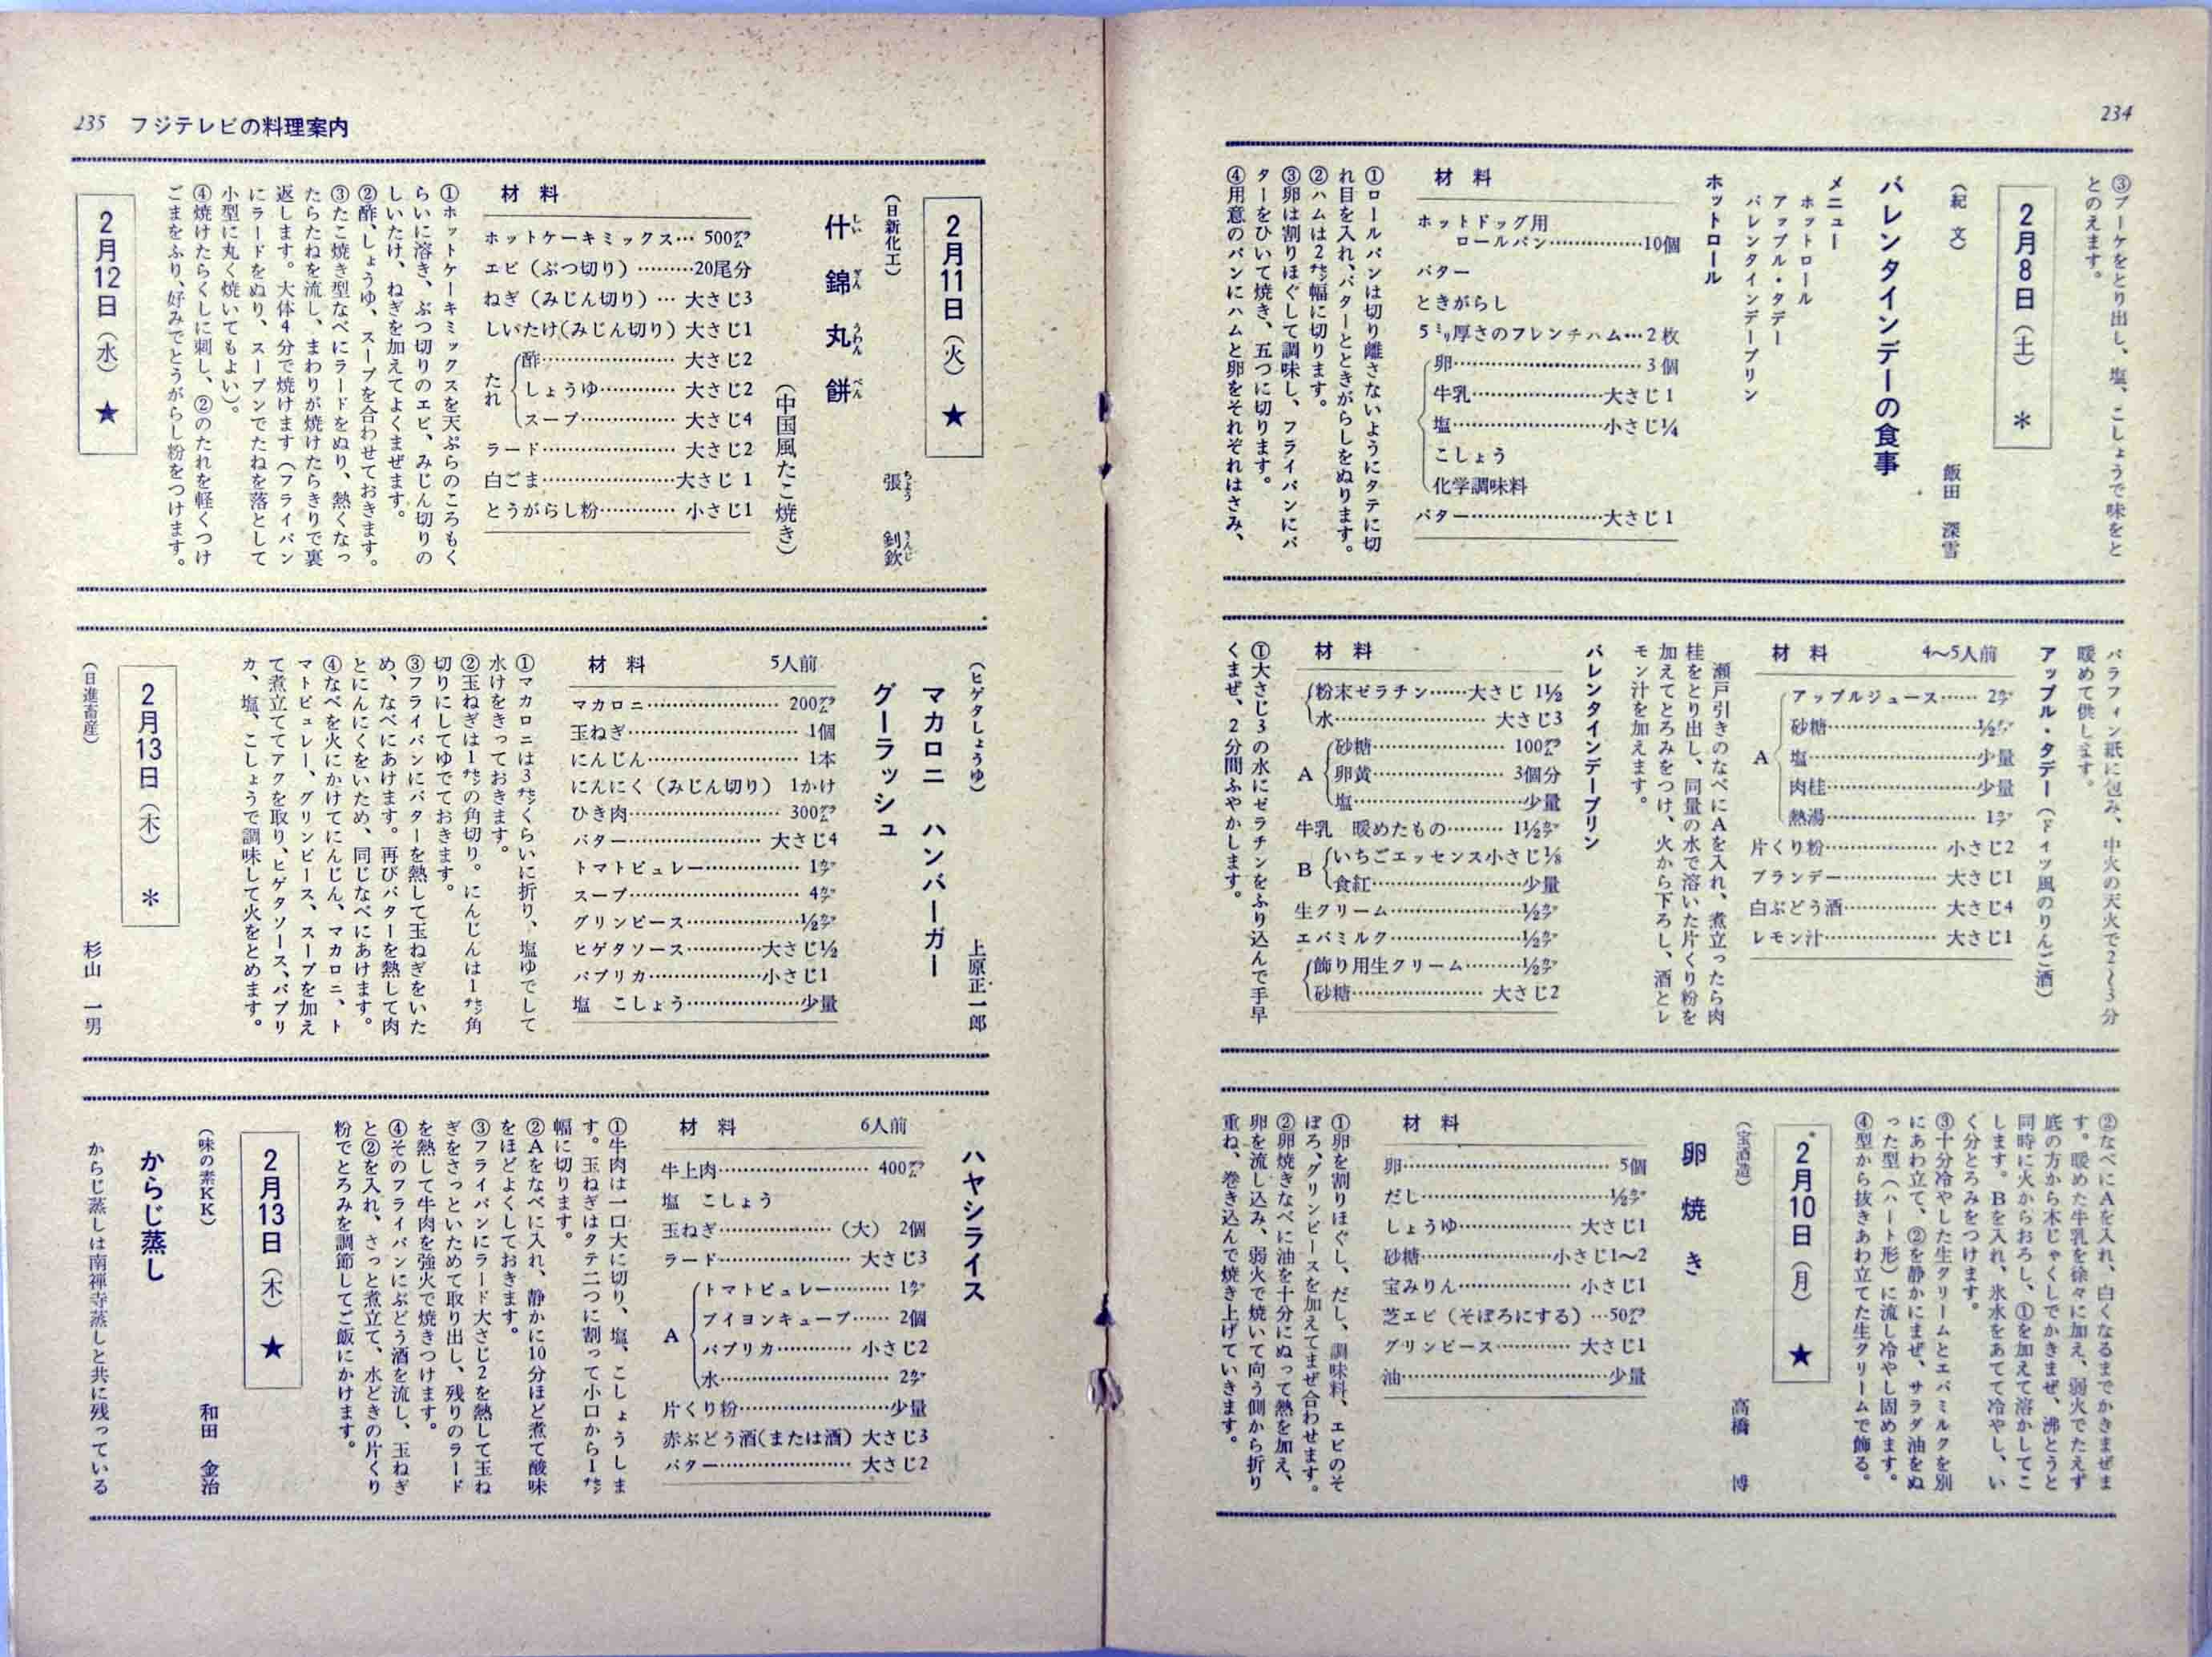 234
③ブーケをとり出し、塩、こしょうで味をと
とのえます。
2月8日（土）　＊
（紀　文）　飯田　深雪
バレンタインデーの食事
メニュー
ホットロール
アップル・タデー
バレンタインデープリン
ホットロール
材　料
ホットドッグ用
ロールパン……………10個
バター
ときがらし
5㍉厚さのフレンチハム…2枚
卵……………………3個
牛乳………………大さじ1
塩…………………小さじ¼
こしょう
化学調味料
バター…………………大さじ1
①ロールパンは切り離さないようにタテに切
れ目を入れ、バターとときがらしをぬります。
②ハムは2㌢幅に切ります。
③卵は割りほぐして調味し、フライパンにバ
ターをひいて焼き、五つに切ります。
④用意のパンにハムと卵をそれぞれはさみ、
パラフィン紙に包み、中火の天火で2〜3分
暖めて供します。
アップル・タデー（ドイツ風のりんご酒）
材　料　4〜5人前
A
アップルジュース……2㌍
砂糖…………………½㌍
塩……………………少量
肉桂…………………少量
熱湯…………………1㌍
片くり粉……………小さじ2
ブランデー…………大さじ1
白ぶどう酒…………大さじ4
レモン汁……………大さじ1
瀬戸引きのなべにAを入れ、煮立ったら肉
桂をとり出し、同量の水で溶いた片くり粉を
加えてとろみをつけ、火から下ろし、酒とレ
モン汁を加えます。
バレンタインデープリン
材　料
粉末ゼラチン……大さじ1½
水…………………大さじ3
A
砂糖………………100㌘
卵黄………………3個分
塩…………………少量
牛乳　暖めたもの………1½㌍
B
いちごエッセンス小さじ⅛
食紅………………少量
生クリーム………………½㌍
エバミルク………………½㌍
飾り用生クリーム………½㌍
砂糖………………大さじ2
①大さじ3の水にゼラチンをふり込んで手早
くまぜ、2分間ふやかします。
②なべにAを入れ、白くなるまでかきまぜま
す。暖めた牛乳を徐々に加え、弱火でたえず
底の方から木じゃくしでかきまぜ、沸とうと
同時に火からおろし、①を加えて溶かしてこ
します。Bを入れ、氷水をあてて冷やし、い
く分とろみをつけます。
③十分冷やした生クリームとエバミルクを別
にあわ立て、②を静かにまぜ、サラダ油をぬ
った型（ハート形）に流し冷やし固めます。
④型から抜きあわ立てた生クリームで飾る。
2月10日（月）　★
（宝酒造）　高橋　博
卵焼き
材　料
卵……………………5個
だし…………………½㌍
しょうゆ……………大さじ1
砂糖………………小さじ1〜2
宝みりん……………小さじ1
芝エビ（そぼろにする）…50㌘
グリンピース…………大さじ1
油……………………少量
①卵を割りほぐし、だし、調味料、エビのそ
ぼろ、グリンピースを加えてまぜ合わせます。
②卵焼きなべに油を十分にぬって熱を加え、
卵を流し込み、弱火で焼いて向う側から折り
重ね、巻き込んで焼き上げていきます。
235　フジテレビの料理案内
2月11日（火）　★
（日新化工）　張　釗欽
ちょう
什錦丸餅
しいぎんうわんべん
（中国風たこ焼き）
材　料
ホットケーキミックス…500㌘
エビ（ぶつ切り）………20尾分
ねぎ（みじん切り）…大さじ3
しいたけ（みじん切り）大さじ1
たれ
酢………………大さじ2
しょうゆ………大さじ2
スープ…………大さじ4
ラード………………大さじ2
白ごま………………大さじ1
とうがらし粉………小さじ1
①ホットケーキミックスを天ぷらのころもく
らいに溶き、ぶつ切りのエビ、みじん切りの
しいたけ、ねぎを加えてよくまぜます。
②酢、しょうゆ、スープを合わせておきます。
③たこ焼き型なべにラードをぬり、熱くなっ
たらたねを流し、まわりが焼けたらきりで裏
返します。大体4分で焼けます（フライパン
にラードをぬり、スープンでたねを落として
小型に丸く焼いてもよい）。
④焼けたらくしに刺し、②のたれを軽くつけ
ごまをふり、好みでとうがらし粉をつけます。
2月12日（水）　★
（ヒゲタしょうゆ）　上原正一郎
マカロニ　ハンバーガー
グーラッシュ
材　料　5人前
マカロニ………………200㌘
玉ねぎ…………………1個
にんじん………………1本
にんにく（みじん切り）1かけ
ひき肉…………………300㌘
バター…………………大さじ4
トマトピュレー………1㌍
スープ…………………4㌍
グリンピース…………½㌍
ヒゲタソース…………大さじ½
パプリカ………………小さじ1
塩　こしょう…………少量
①マカロニは3㌢くらいに折り、塩ゆでして
水けをきっておきます。
②玉ねぎは1㌢の角切り。にんじんは1㌢角
切りにしてゆでておきます。
③フライパンにバターを熱して玉ねぎをいた
め、なべにあけます。再びバターを熱して肉
とにんにくをいため、同じなべにあけます。
④なべを火にかけてにんじん、マカロニ、ト
マトピュレー、グリンピース、スープを加え
て煮立ててアクを取り、ヒゲタソース、パプリ
カ、塩、こしょうで調味して火をとめます。
2月13日（木）　＊
（日進畜産）　杉山　一男
ハヤシライス
材　料　6人前
牛上肉…………………400㌘
塩　こしょう
玉ねぎ……………（大）2個
ラード………………大さじ3
A
トマトピュレー………1㌍
ブイヨンキューブ……2個
パプリカ…………小さじ2
水…………………2㌍
片くり粉………………少量
赤ぶどう酒（または酒）大さじ3
バター………………大さじ2
①牛肉は一口大に切り、塩、こしょうしま
す。玉ねぎはタテ二つに割って小口から1㌢
幅に切ります。
②Aをなべに入れ、静かに10分ほど煮て酸味
をほどよくしておきます。
③フライパンにラード大さじ2を熱して玉ね
ぎをさっといためて取り出し、残りのラード
を熱して牛肉を強火で焼きつけます。
④そのフライパンにぶどう酒を流し、玉ねぎ
と②を入れ、さっと煮立て、水どきの片くり
粉でとろみを調節してご飯にかけます。
2月13日（木）　★
（味の素KK）　和田　金治
からじ蒸し
からじ蒸しは南禅寺蒸しと共に残っている